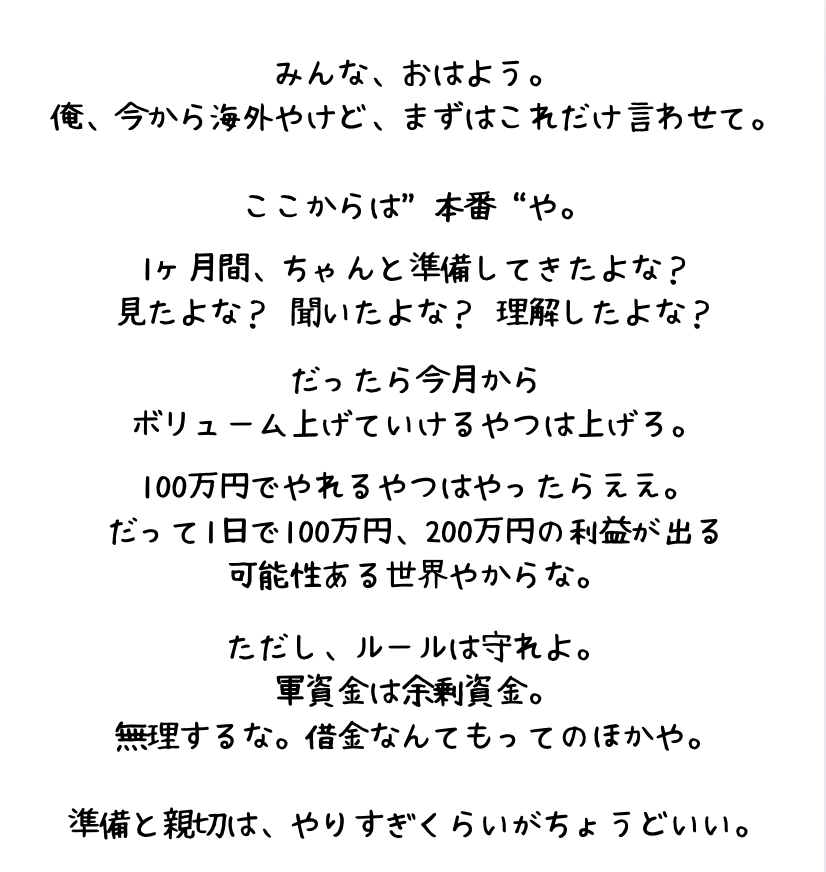 みんな、おはよう。
俺、今から海外やけど、まずはこれだけ言わせて。
ここからは”本番“や。
1ヶ月間、ちゃんと準備してきたよな？
見たよな？ 聞いたよな？ 理解したよな？
だったら今月から
ボリューム上げていけるやつは上げろ。
100万円でやれるやつはやったらええ。
だって1日で100万円、200万円の利益が出る
可能性ある世界やからな。
ただし、ルールは守れよ。
軍資金は余剰資金。
無理するな。借金なんてもってのほかや。
準備と親切は、やりすぎくらいがちょうどいい。